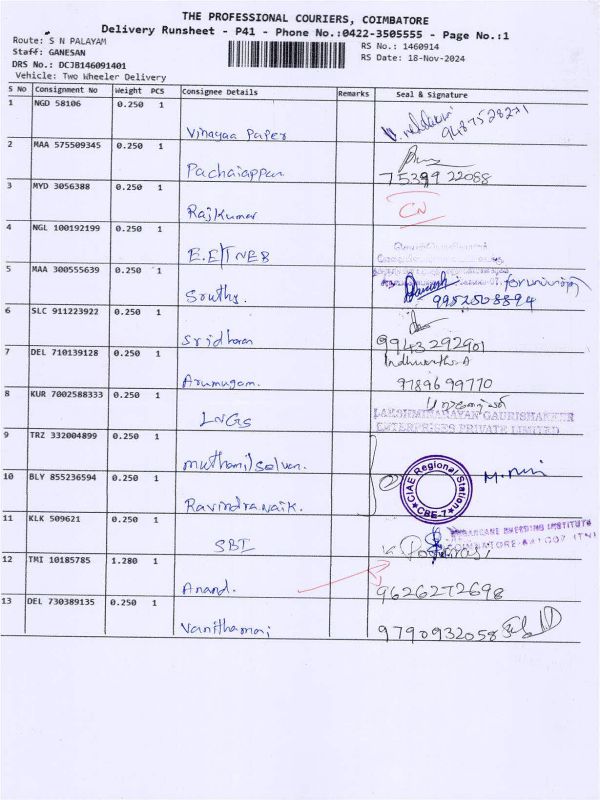 THE PROFESSIONAL COURIERS, COIMBATORE
Delivery Runsheet - P41 - Phone No.:0422-3505555 - Page No.:1
Route: S N PALAYAM
RS No.: 1460914
Staff: GANESAN
RS Date: 18-Nov-2024
DRS No.: DCJB146091401
Vehicle: Two Wheeler Delivery
S No Consignment No Weight PCS Consignee Details Remarks Seal & Signature
1 NGD 58106 0.250 1
Vinayaa Paper
9487528271
2 MAA 575509345 0.250 1
Pachaiappan
75399 22088
3 MYD 3056388 0.250 1
Rajkumar CN
4 NGL 100192199 0.250 1
E.E/TNEB
5 MAA 300555639 0.250 1
Southy. 9952508894
6 SLC 911223922 0.250 1
Sridharan 9943292901
7 DEL 710139128 0.250 1
Arumugam. 97896 99770
8 KUR 7002588333 0.250 1
LNGS LAKSHMINARAYAN GAURISHANKER
ENTERPRISES PRIVATE LIMITED
9 TRZ 332004899 0.250 1
muthamilselvan.
10 BLY 855236594 0.250 1
Ravindranaik.
CIAE Regional Station
CBE-7
11 KLK 509621 0.250 1
SBI
SUGARCANE BREEDING INSTITUTE
COIMBATORE-641 007 (TN)
12 TMI 10185785 1.280 1
Anand. 9626272698
13 DEL 730389135 0.250 1
Vanithamai 9790932058